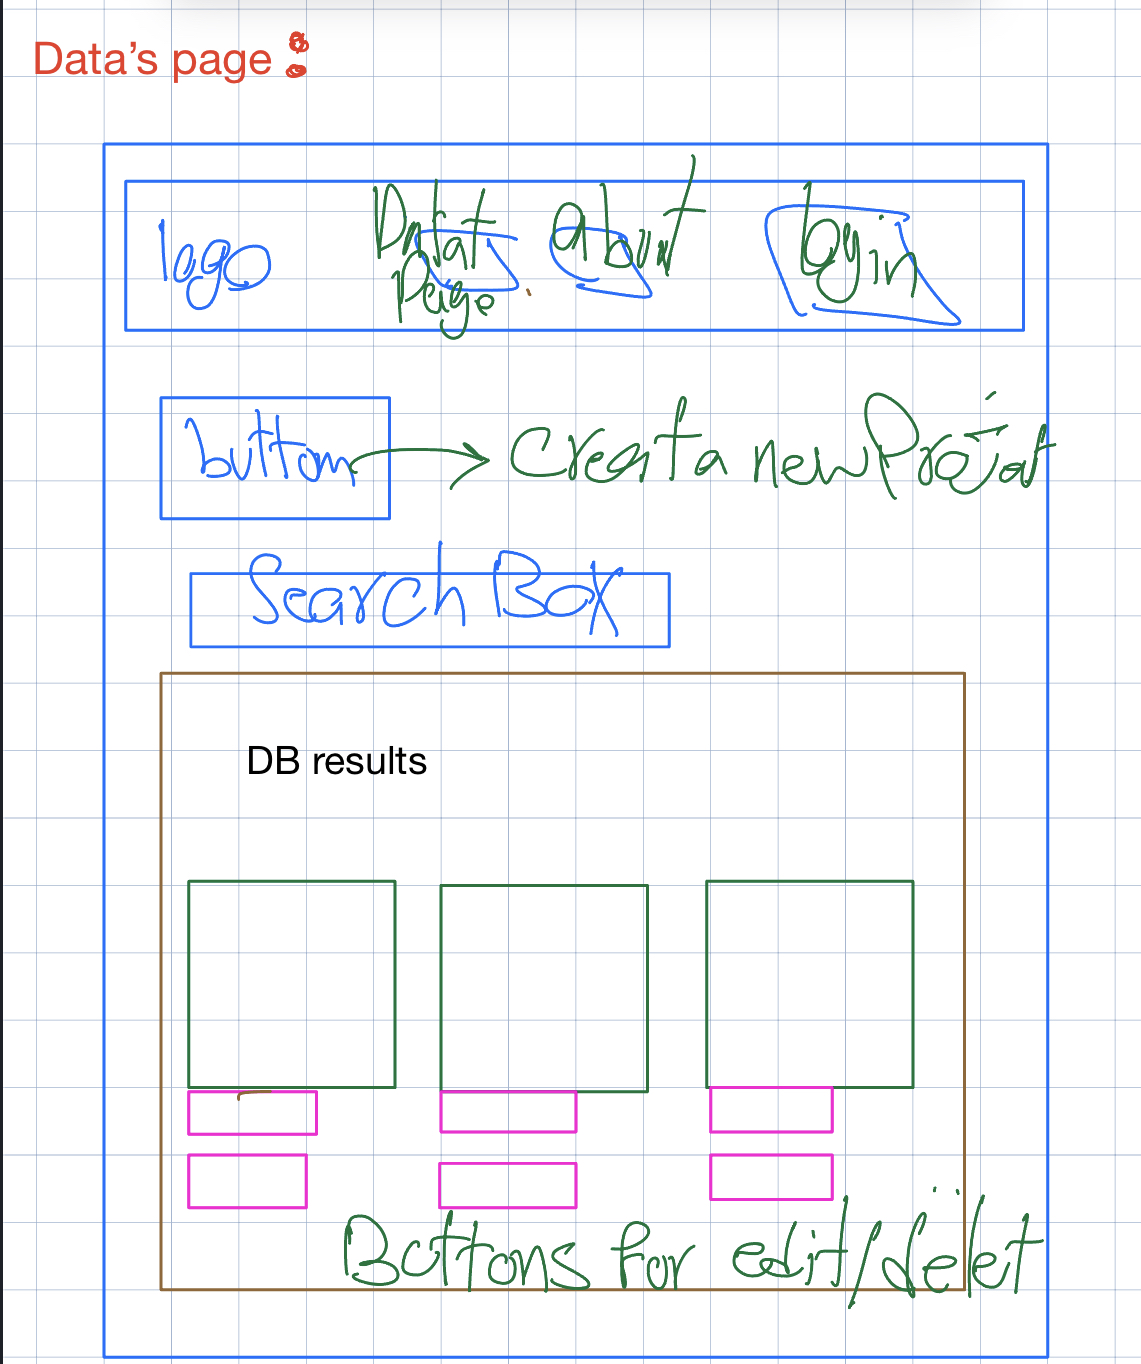 Data's page :
logo
Datat
Page
About
login
button
Creat a new Project
Search Box
DB results
Buttons for edit/delet